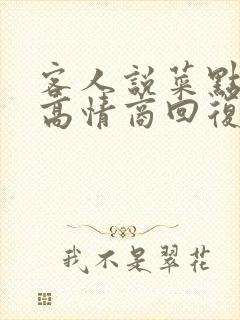 客人説菜點
高情商回復
我不是翠花